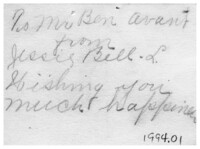 To Mr Ben Avant
from
Jessey Bell. L.
Wishing you
much happiness
1994.01